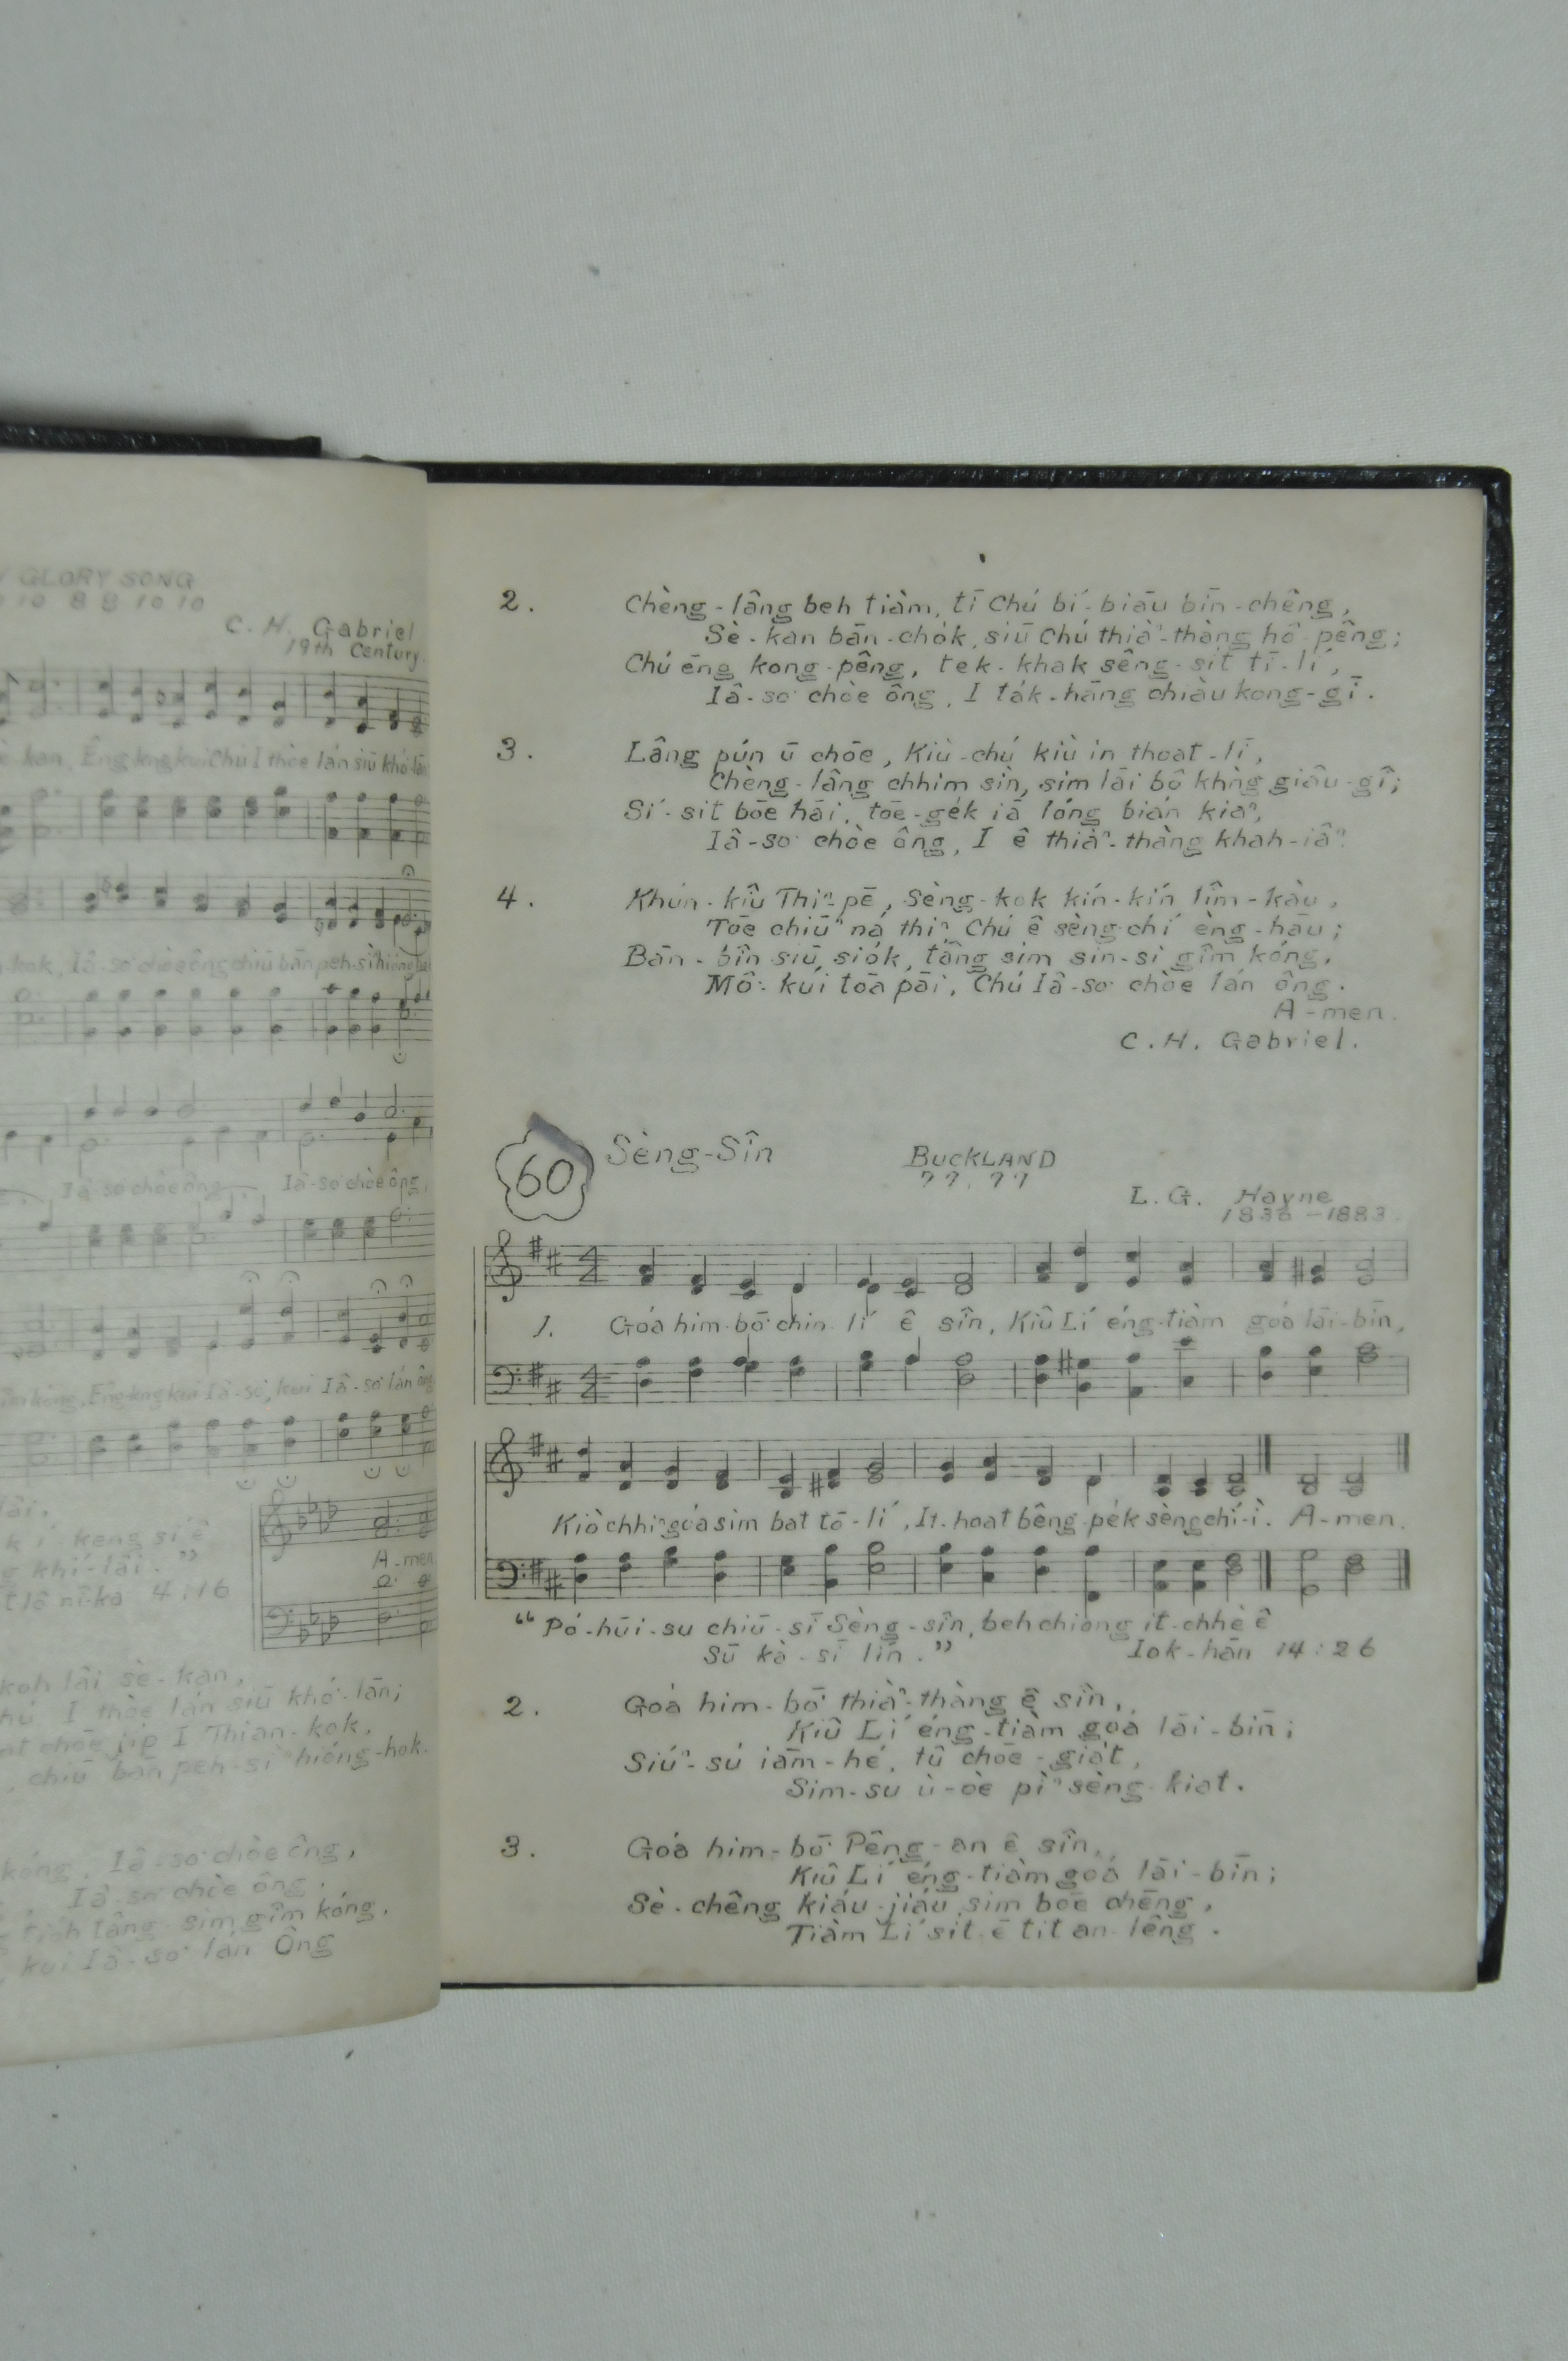 GLORY SONG
10 8 8 10 10
C. H. Gabriel
19th Century
kan, Êng-kng kui Chú I thòe lán siū khó-lān
kok, Iâ-so͘ chòe ông chiū bān peh-sìⁿ hióng-hok
Iâ-so͘ chòe ông, Iâ-so͘ chòe ông,
kóng, Êng-kng kui Iâ-so͘, kui Iâ-so͘ lán ông
lâi.
keng sī ê
khí-lâi."
A-men
nî-ka 4:16
koh lâi sè-kan,
I thòe lán siū khó͘-lān;
chōe ji̍p I Thian-kok,
chiū bān peh-sìⁿ hióng-hok.
kóng, Iâ-so͘ chòe ông,
Iâ-so͘ chòe ông.
lâng-sim gîm kóng,
kui Iâ-so͘ lán Ông
2. Chèng-lâng beh tiàm, tī Chú bí-biāu bīn-chêng,
Sè-kan bān-cho̍k, siū Chú thiàⁿ-thàng hô-pêng;
Chú êng kong-pêng, tek-khak sêng-si̍t tī-lí,
Iâ-so͘ chòe ông, I ta̍k-hāng chiàu kong-gī.
3. Lâng pún ū chōe, Kiù-chú kiù in thoat-lī,
Chèng-lâng chhim sìn, sim lāi bô khǹg giâu-gî;
Sí-sit bōe hāi, tōe-ge̍k iā lóng bián kiaⁿ,
Iâ-so͘ chòe ông, I ê thiàⁿ-thàng khah-iâⁿ.
4. Khún-kiû Thiⁿ-pē, Sèng-kok kín-kín lîm-kàu,
Tōe chiūⁿ ná thiⁿ, Chú ê sèng-chí èng-hāu;
Bān-bîn siū sio̍k, tâng sim sin-si gîm kóng,
Mô͘-kúi tōa pāi, Chú Iâ-so͘ chòe lán ông.
A-men.
C. H. Gabriel.
60 Sèng-Sîn BUCKLAND
77. 77
L. G. Hayne
1836-1883.
1. Góa him-bō͘ chin-lí ê sîn, Kiû Lí éng-tiàm góa lāi-bīn,
Kiò chhíⁿ góa sim bat tō-lí, It-hoat bêng-pe̍k sèng chí-ì. A-men.
"Pó-hūi-su chiū-sī Sèng-sîn, beh chiong it-chhè ê
Sū kà-sī lín." Iok-hān 14:26
2. Góa him-bō͘ thiàⁿ-thàng ê sîn,
Kiû Lí éng-tiàm góa lāi-bīn;
Siúⁿ-sú iām-hé, tû chōe-gia̍t,
Sim-su ù-òe pìⁿ sèng-kiat.
3. Góa him-bō͘ Pêng-an ê sîn,
Kiû Lí éng-tiàm góa lāi-bīn;
Sè-chêng kiáu-jiáu sim bōe chēng,
Tiàm Lí sit ē tit an-lêng.